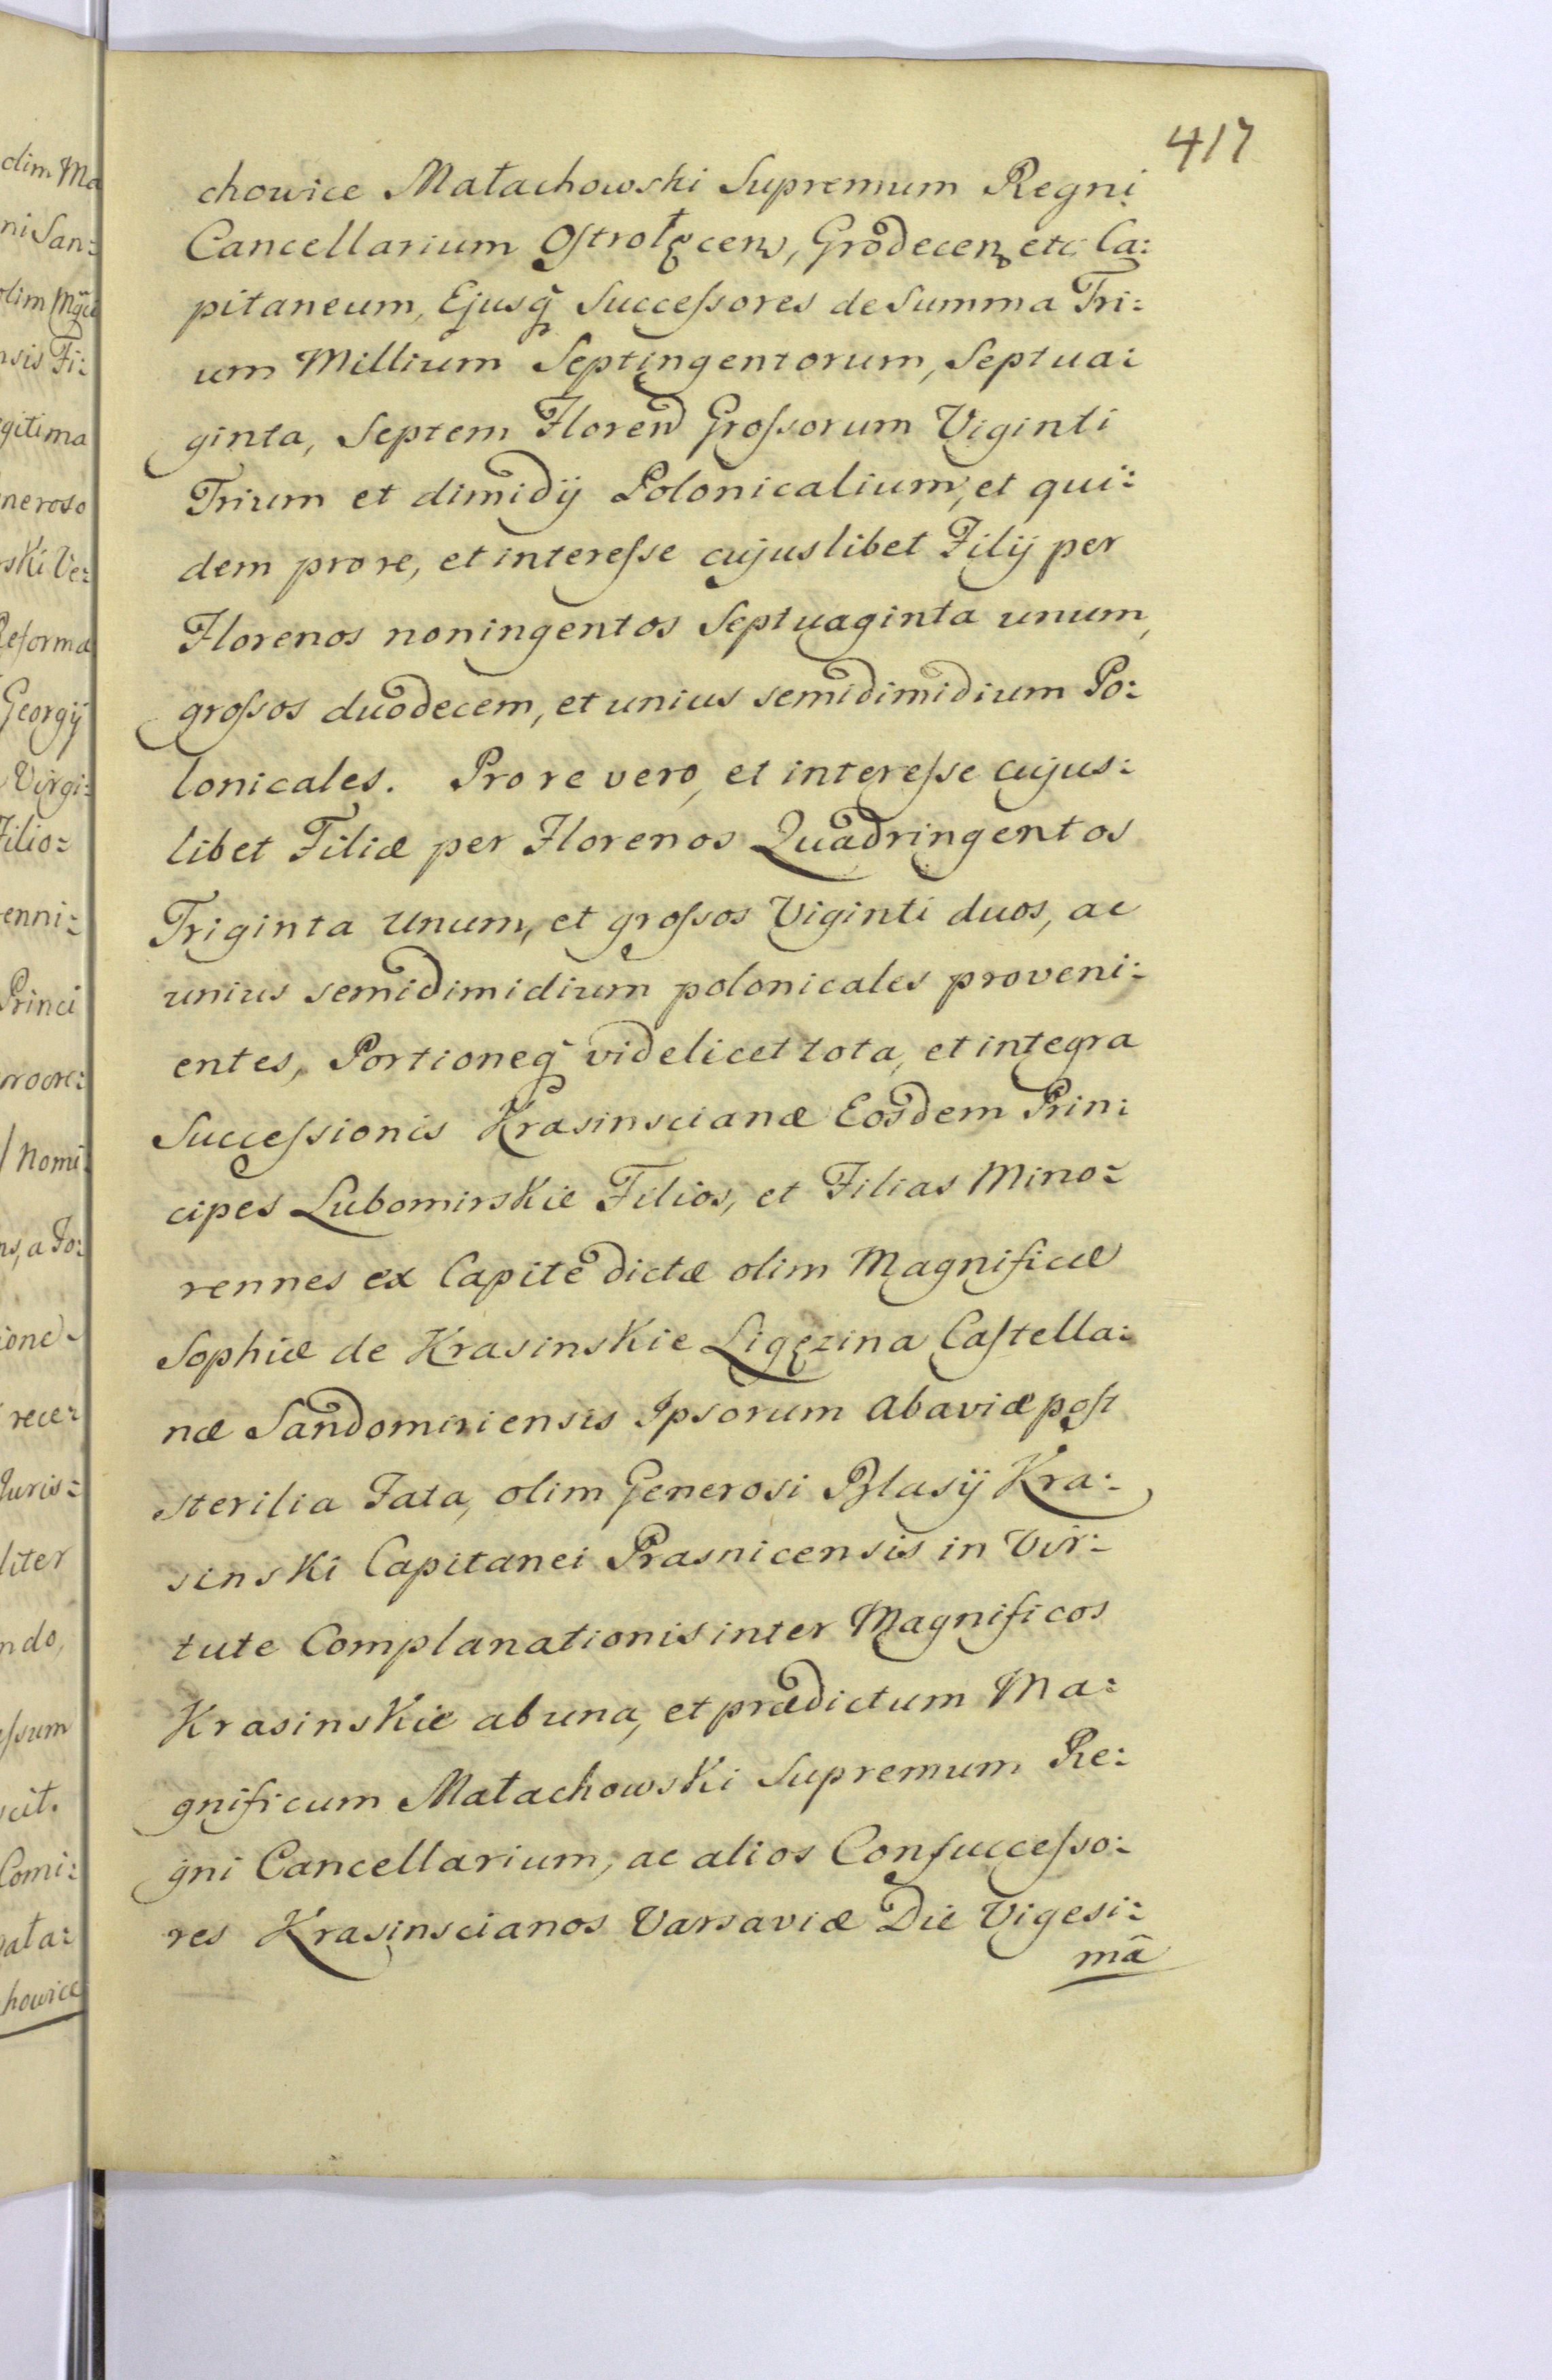 417
chowice Małachowski Supremum Regni
Cancellarium Ostrołęcen, Grodecen etc. Ca:
pitaneum, Ejusq̃ Succeſsores de Summa Tri:
um Millium Septingentorum, Septua:
ginta, Septem Floren Groſsorum Viginti
Trium et dimidij Polonicalium, et qui:
dem pro re, et intereſse cujuslibet Filij per
Florenos noningentos Septuaginta unum,
groſsos duodecem, et unius semidimidium Po:
lonicales. Pro re vero, et intereſse cujus:
libet Filiæ per Florenos Quadringentos
Triginta Unum, et groſsos Viginti duos, ac
unius semidimidium polonicales proveni:
entes, Portioneq̃ videlicet tota, et integra
Succeſsionis Krasinscianæ Eosdem Prin:
cipes Lubomirskie Filios, et Filias Mino:
rennes ex Capite dictæ olim Magnificæ
Sophiæ de Krasinskie Ligęzina Caſtella:
næ Sandomiriensis Ipsorum Abaviæ poſt
sterilia Fata, olim Generosi Blasij Kra:
sinski Capitanei Prasnicensis in Vir:
tute Complanationis inter Magnificos
Krasinskie ab una, et prædictum Ma:
gnificum Małachowski Supremum Re:
gni Cancellarium, ac alios Conſucceſso:
res Krasinscianos Varsaviæ Die Vigesi:
mâ